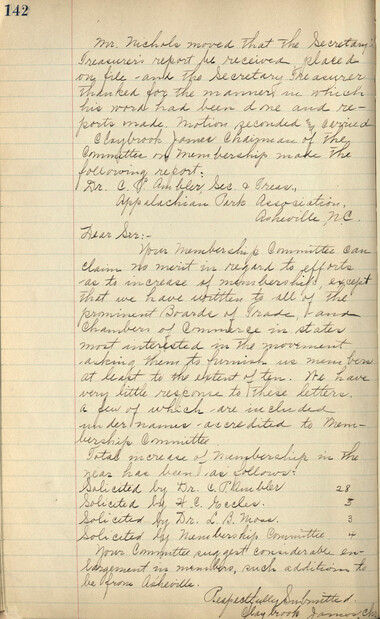 142
Mr. Nichols moved that the Secretary
Treasurer's report be received, placed
on file and the Secretary Treasurer
thanked for the manner in which
his work had been done and re-
ports made. Motion seconded & carried
Claybrook James Chairman of the
Committee on Membership made the
following report:
Dr. C. P. Ambler, Sec. & Treas.,
Appalachian Park Association,
Asheville, N.C.
Dear Sir:-
Your Membership Committee can
claim no merit in regard to efforts
as to increase of membership, except
that we have written to all of the
prominent Boards of Trade, and
Chambers of Commerce in states
most interested in the movement
asking them to furnish us members
at least to the extent of ten. We have
very little response to these letters.
A few of which are included
under names accredited to Mem-
bership Committee.
Total increase of Membership in the
year has been as follows:
Solicited by Dr. C. P. Ambler 28
Solicited by H. C. Eccles.
Solicited by Dr. L. B. Moss. 3
Solicited by Membership Committee 4
Your Committee suggest considerable en-
largement in members, such addition to
be from Asheville.
Respectfully Submitted.
Claybrook James,